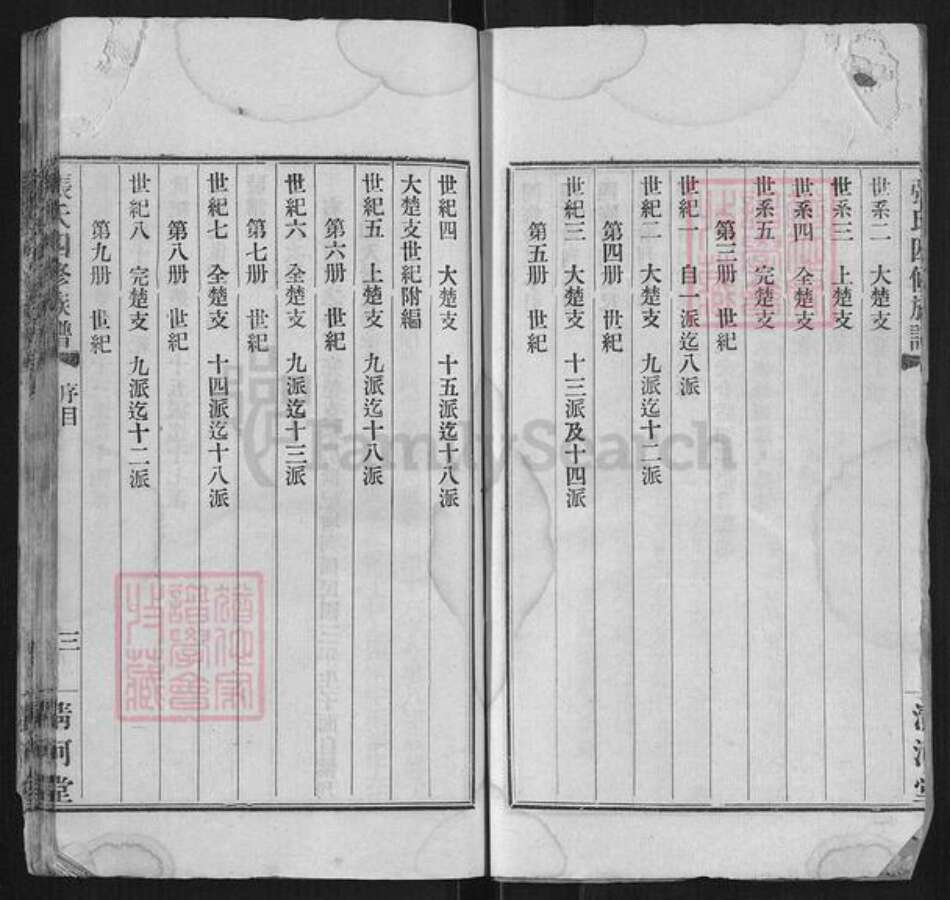 張氏四修族譜
清河堂
世系二 大楚支
世系三 上楚支
世系四 全楚支
世系五 完楚支
第三册 世紀
世紀一 自一派迄八派
世紀二 大楚支 九派迄十二派
第四册 世紀
世紀三 大楚支 十三派及十四派
第五册 世紀
世紀四 大楚支 十五派迄十八派
大楚支世紀附編
世紀五 上楚支 九派迄十八派
第六册 世紀
世紀六 全楚支 九派迄十三派
第七册 世紀
世紀七 全楚支 十四派迄十八派
第八册 世紀
世紀八 完楚支 九派迄十二派
第九册 世紀
張氏四修族譜 序目 三 清河堂
FamilySearch